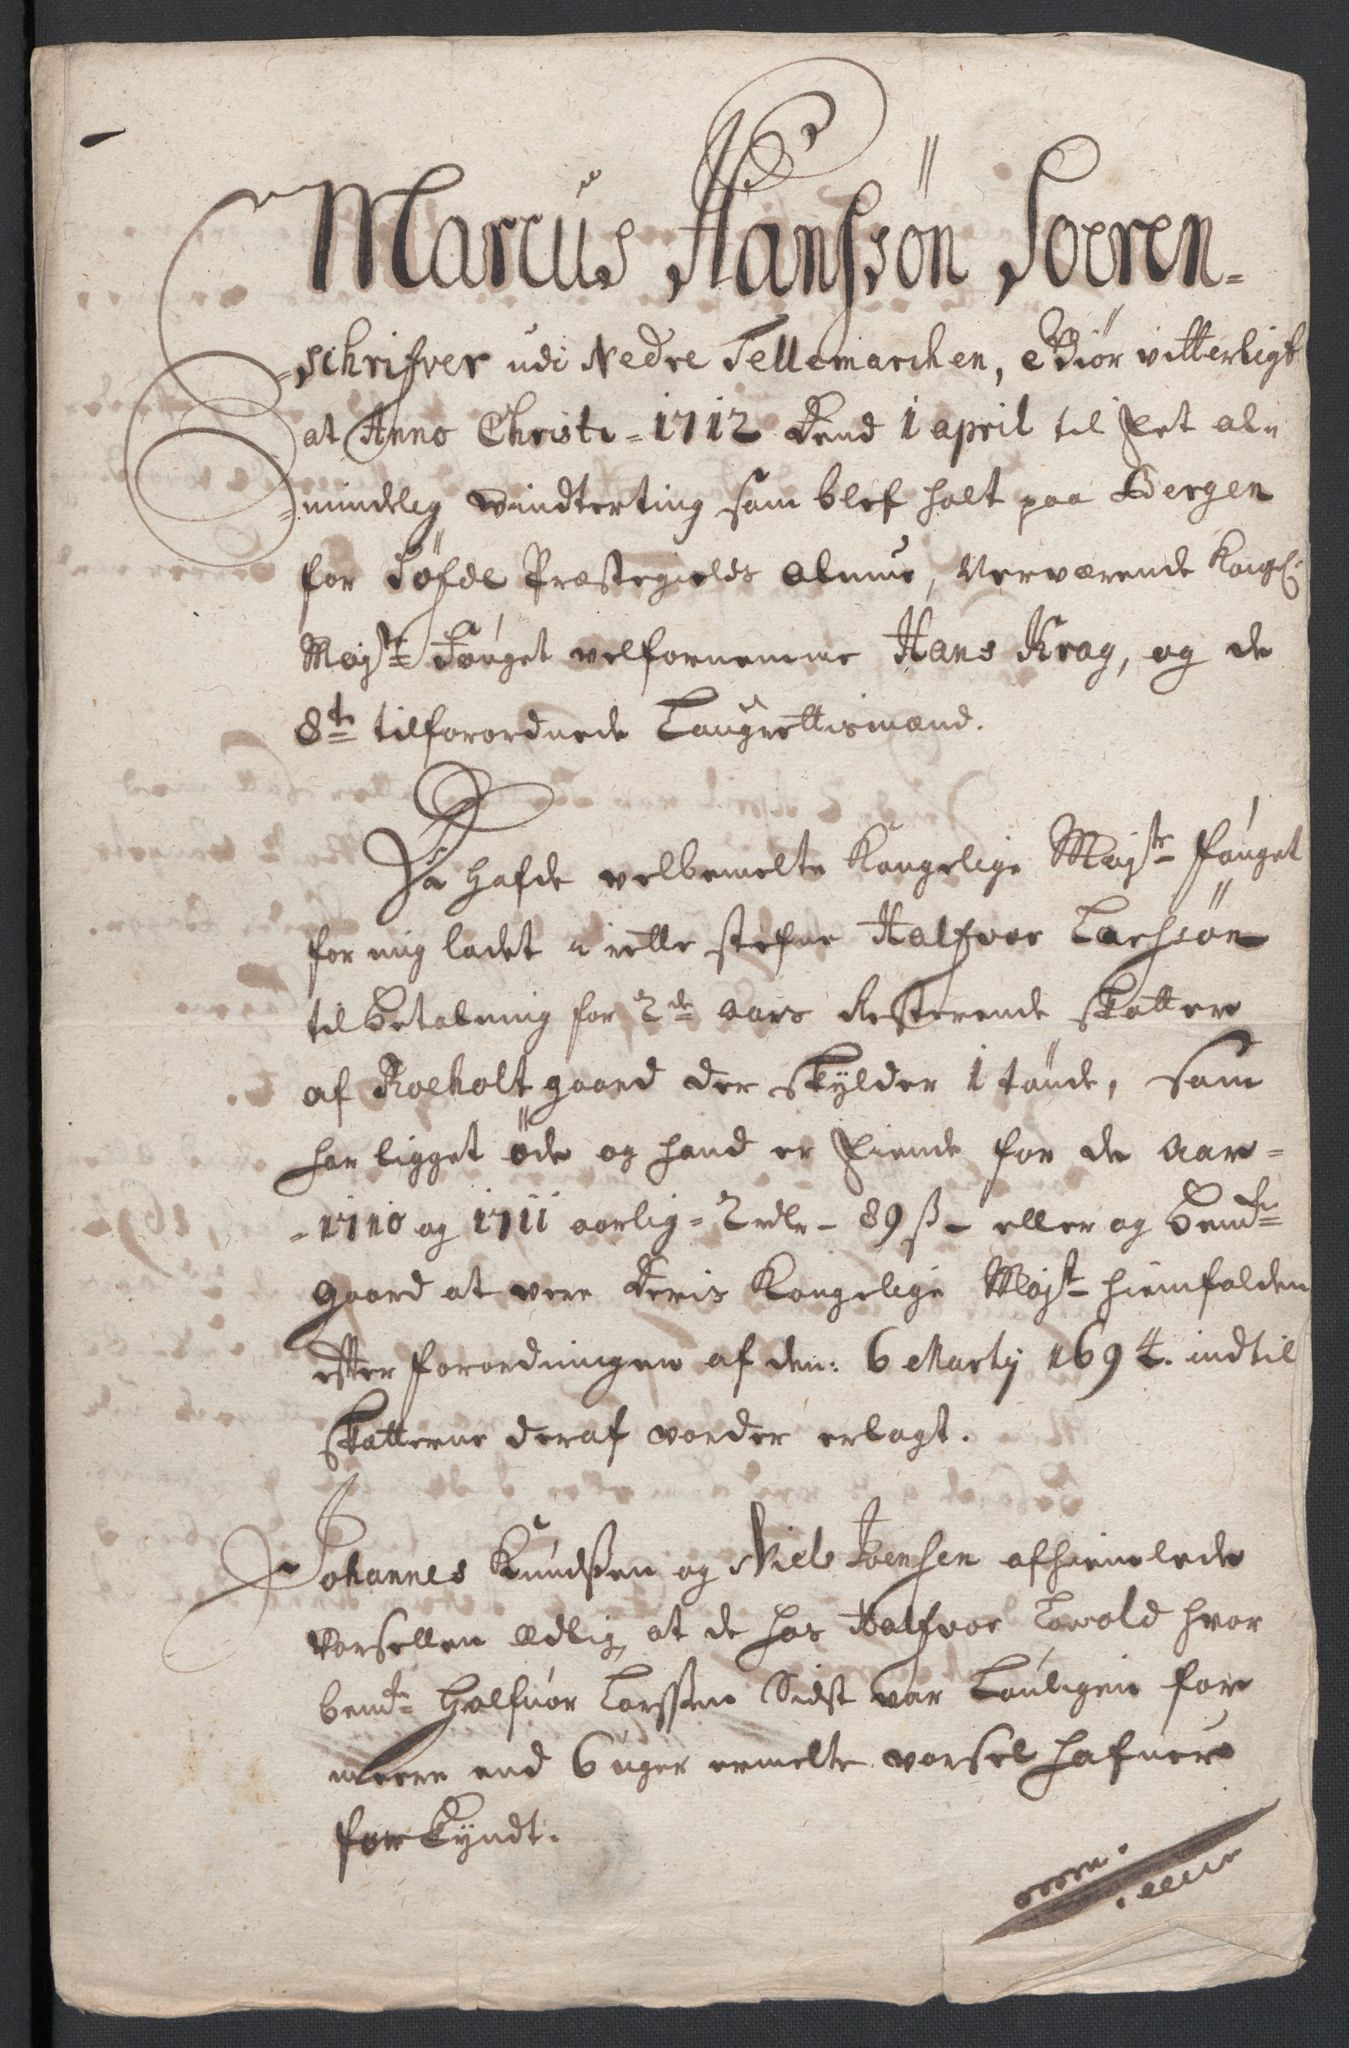 Marcus Hanssön Soeren-
-schrifver udi Nedre Tellemarchen, Giör vitterligt
at Anno Christi - 1712 Dend 1 april til Det al=
=mindelig Windterting som blef holt paa Bergen
for Söfde Præstegields almue, Nerværende Kongl:
Mayst: Fouget velfornemme Hans Krag, og de
8te tilforordnede Laugrettismænd.
Da hafde velbemelte Kongelige Mayst: fouget
for mig ladet i rette stefne Halfvor Larssön
til betalning for 2de aars Resterende Skatter
af Roeholt gaard der Skylder 1 tönde, som
har ligget öde og hand er Eiende for de Aar=
=1710 og 1711 aarlig - 2 rdlr - 89 ß - eller og bemte
gaard at vere Deris Kongelige Mayst: hiemfalden
efter forordningen af den: 6 Marty 1694. indtil
Skatterne deraf vorder erlagt.
Johannes Knudssen og Niels Joensen afhiemlede
Varsellen Edlig, at de hos Halfvor Lavold hvor
bemte Halfuor Larssen Sidst var Louligen for
meere end 6 uger ermelte varsel hafuer
forkyndt.